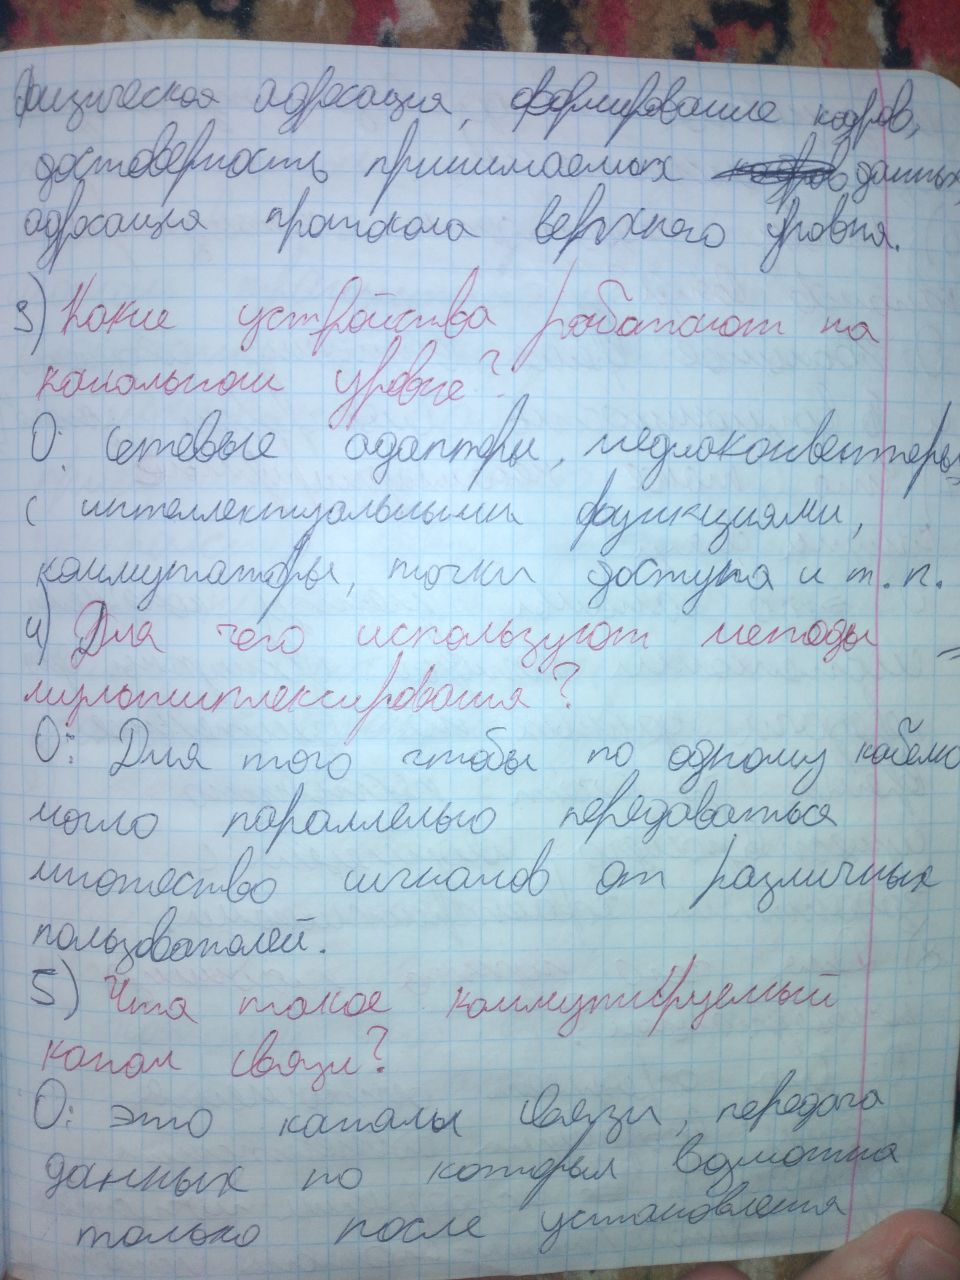 физическая адресация, формирование кадров,
достоверность принимаемых данных,
адресация протокола верхнего уровня.
3) Какие устройства работают на
канальном уровне?
О: Сетевые адаптеры, медиаконвенттеры,
с интеллектуальными функциями,
коммутаторы, точки доступа и т.п.
4) Для чего используют методы
мультиплексирования?
О: Для того чтобы по одному кабелю
могло параллельно передаваться
множество сигналов от различных
пользователей.
5) Что такое коммутируемый
канал связи?
О: это каналы связи, передача
данных по которым возможна
только после установления